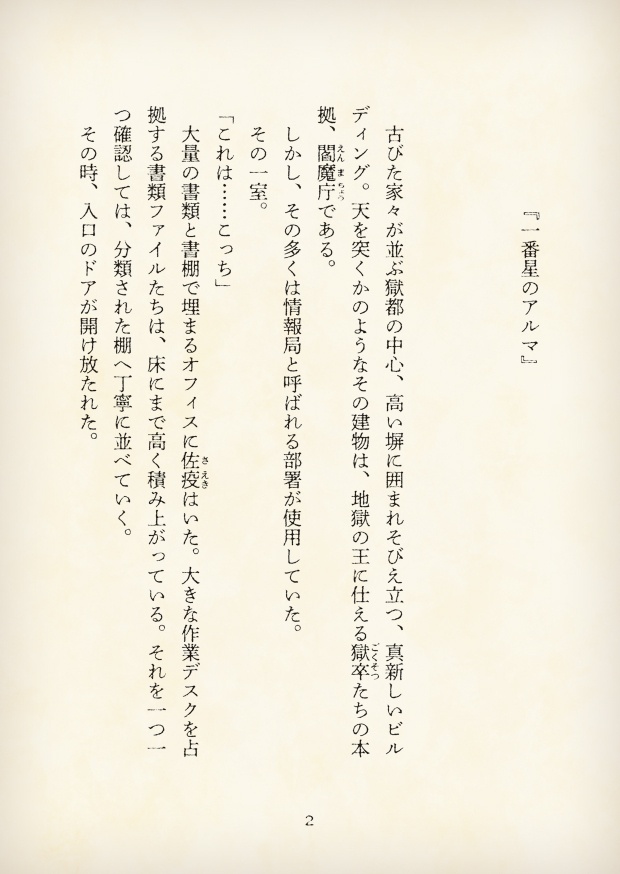 『一番星のアルマ』
古びた家々が並ぶ獄都の中心、高い塀に囲まれそびえ立つ、真新しいビル
ディング。天を突くかのようなその建物は、地獄の王に仕える獄卒たちの本
拠、閻魔庁である。
しかし、その多くは情報局と呼ばれる部署が使用していた。
その一室。
「これは……こっち」
大量の書類と書棚で埋まるオフィスに佐疫はいた。大きな作業デスクを占
拠する書類ファイルたちは、床にまで高く積み上がっている。それを一つ一
つ確認しては、分類された棚へ丁寧に並べていく。
その時、入口のドアが開け放たれた。
2